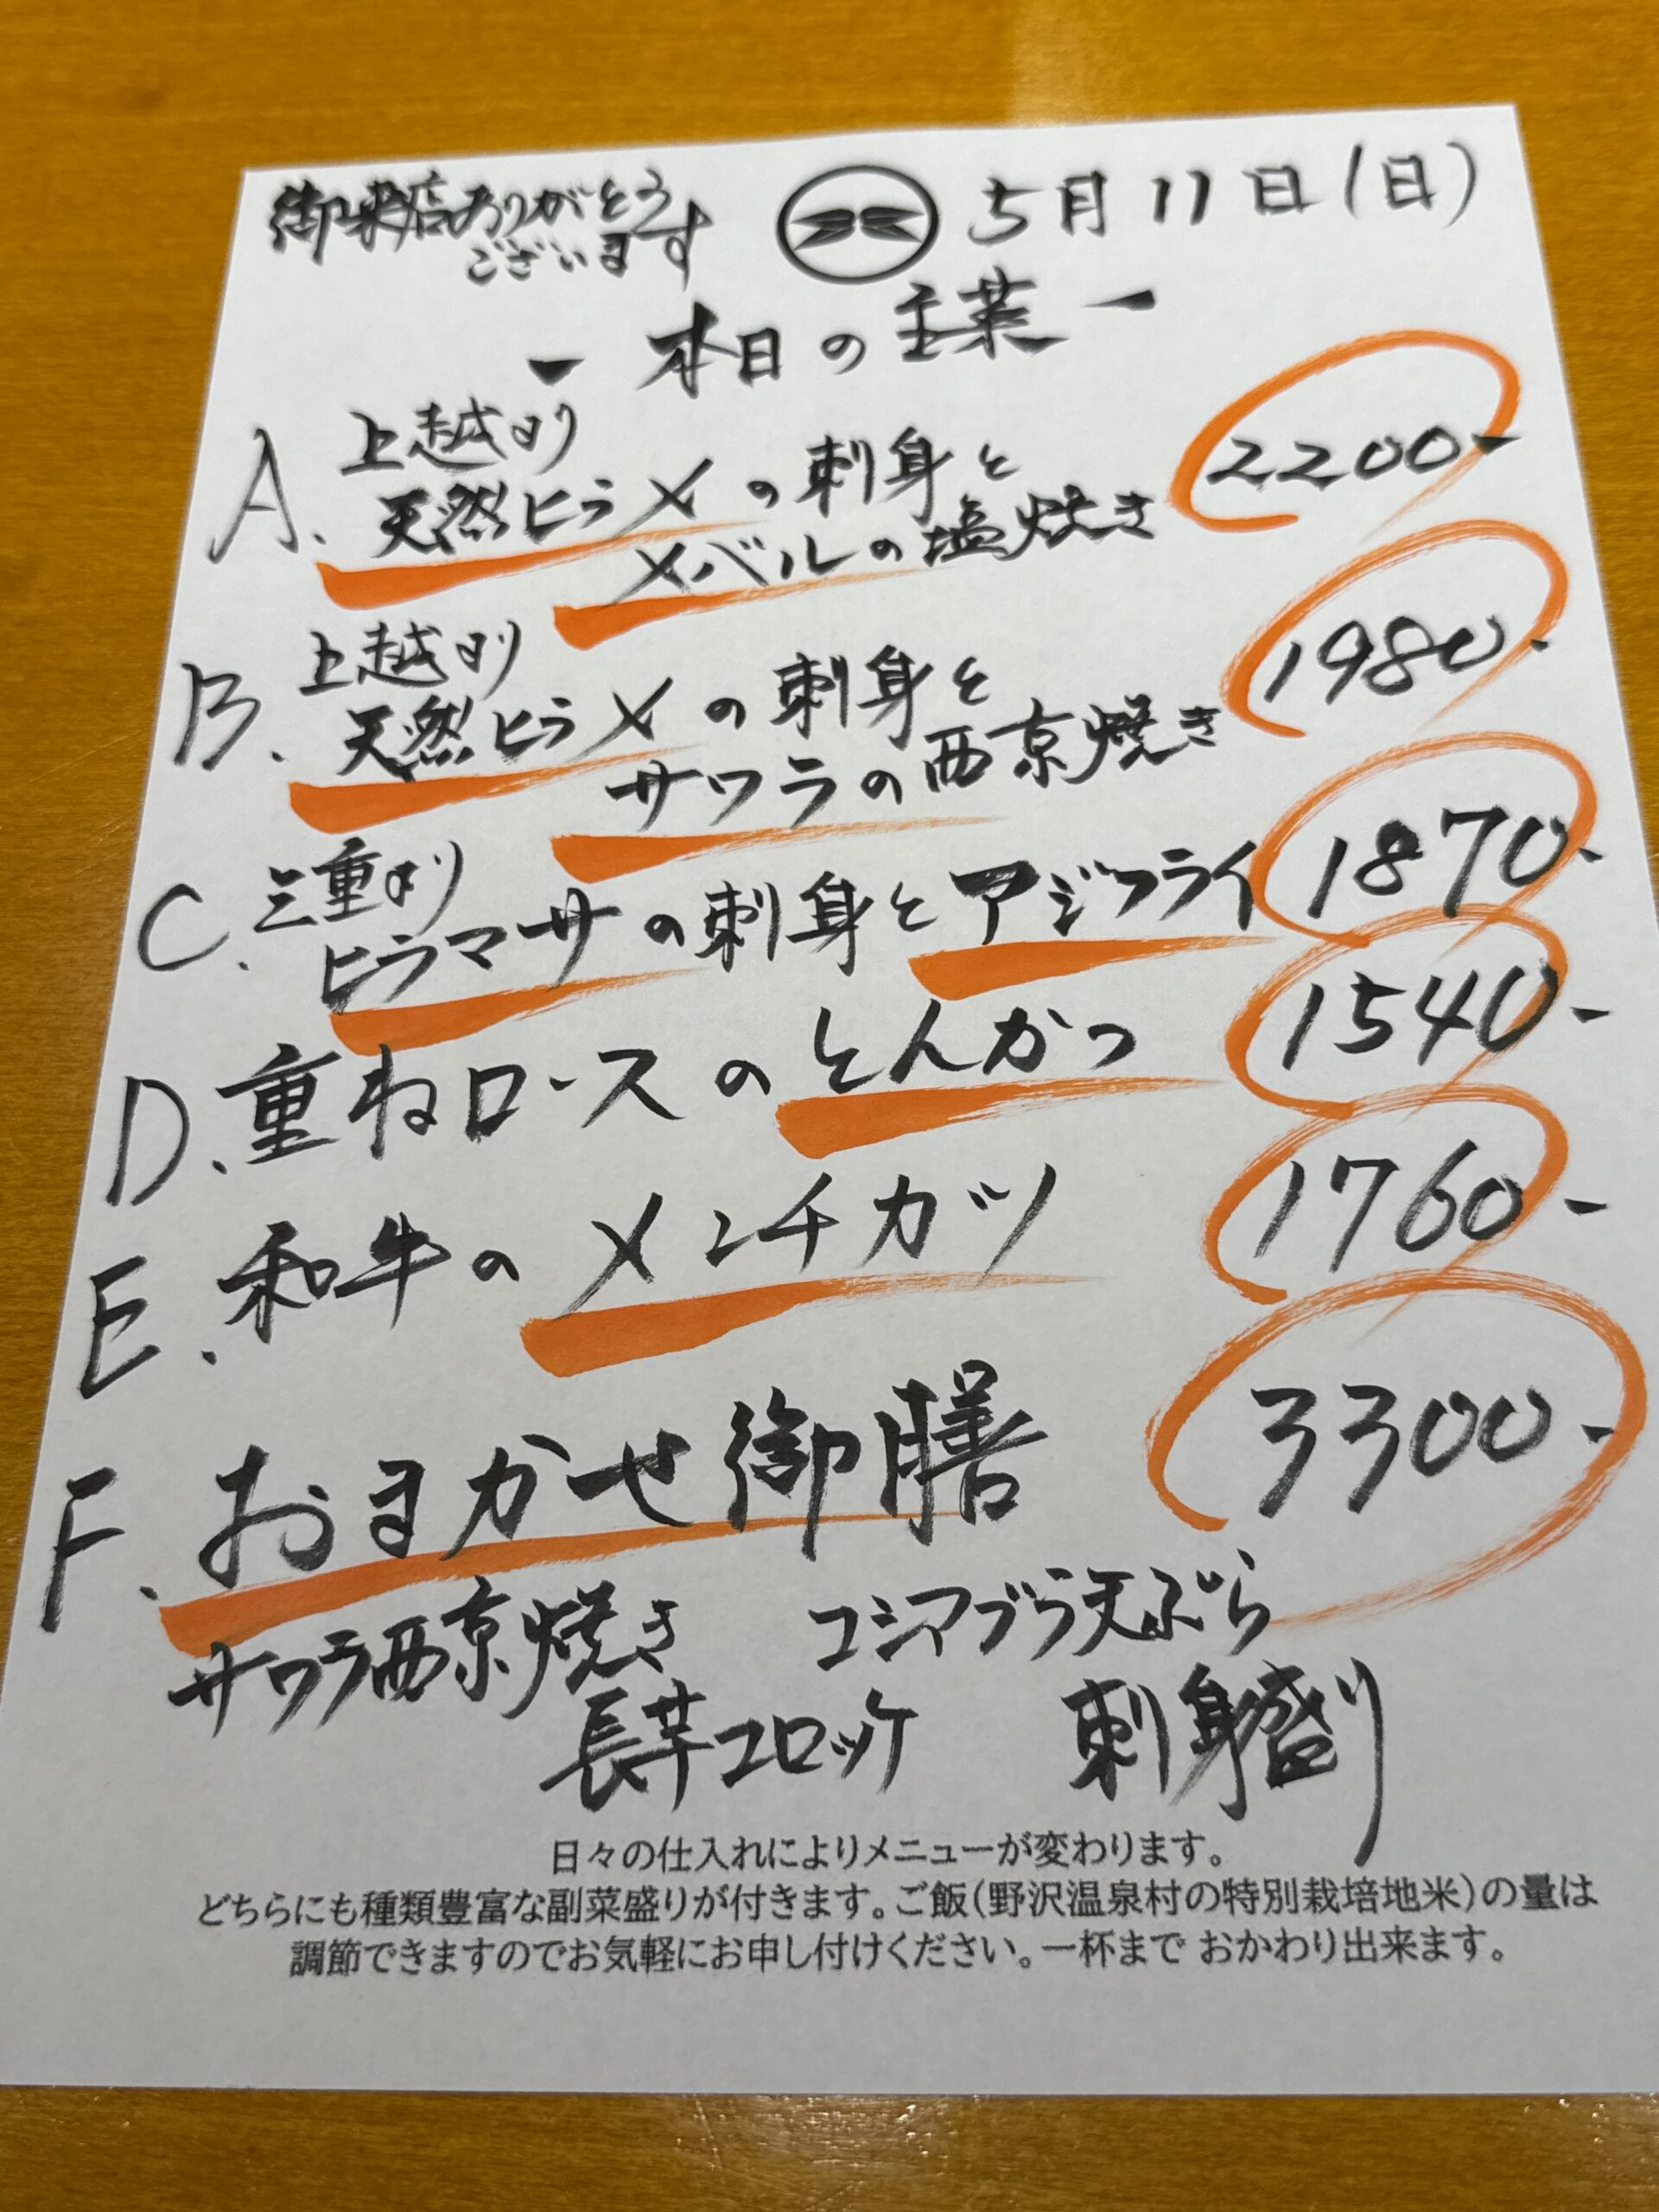 御来店ありがとう
ございます
5月11日(日)
- 本日の主菜 -
A. 上越より
天然ヒラメの刺身と
メバルの塩焼き
2200-
B. 上越より
天然ヒラメの刺身と
サワラの西京焼き
1980-
C. 三重より
ヒラマサの刺身とアジフライ
1870-
D. 重ねロースのとんかつ 1540-
E. 和牛のメンチカツ 1760-
F. おまかせ御膳 3300-
サワラ西京焼き コシアブラ天ぷら
長芋コロッケ 刺身盛り
日々の仕入れによりメニューが変わります。
どちらにも種類豊富な副菜盛りが付きます。ご飯(野沢温泉村の特別栽培地米)の量は
調節できますのでお気軽にお申し付けください。一杯まで おかわり出来ます。